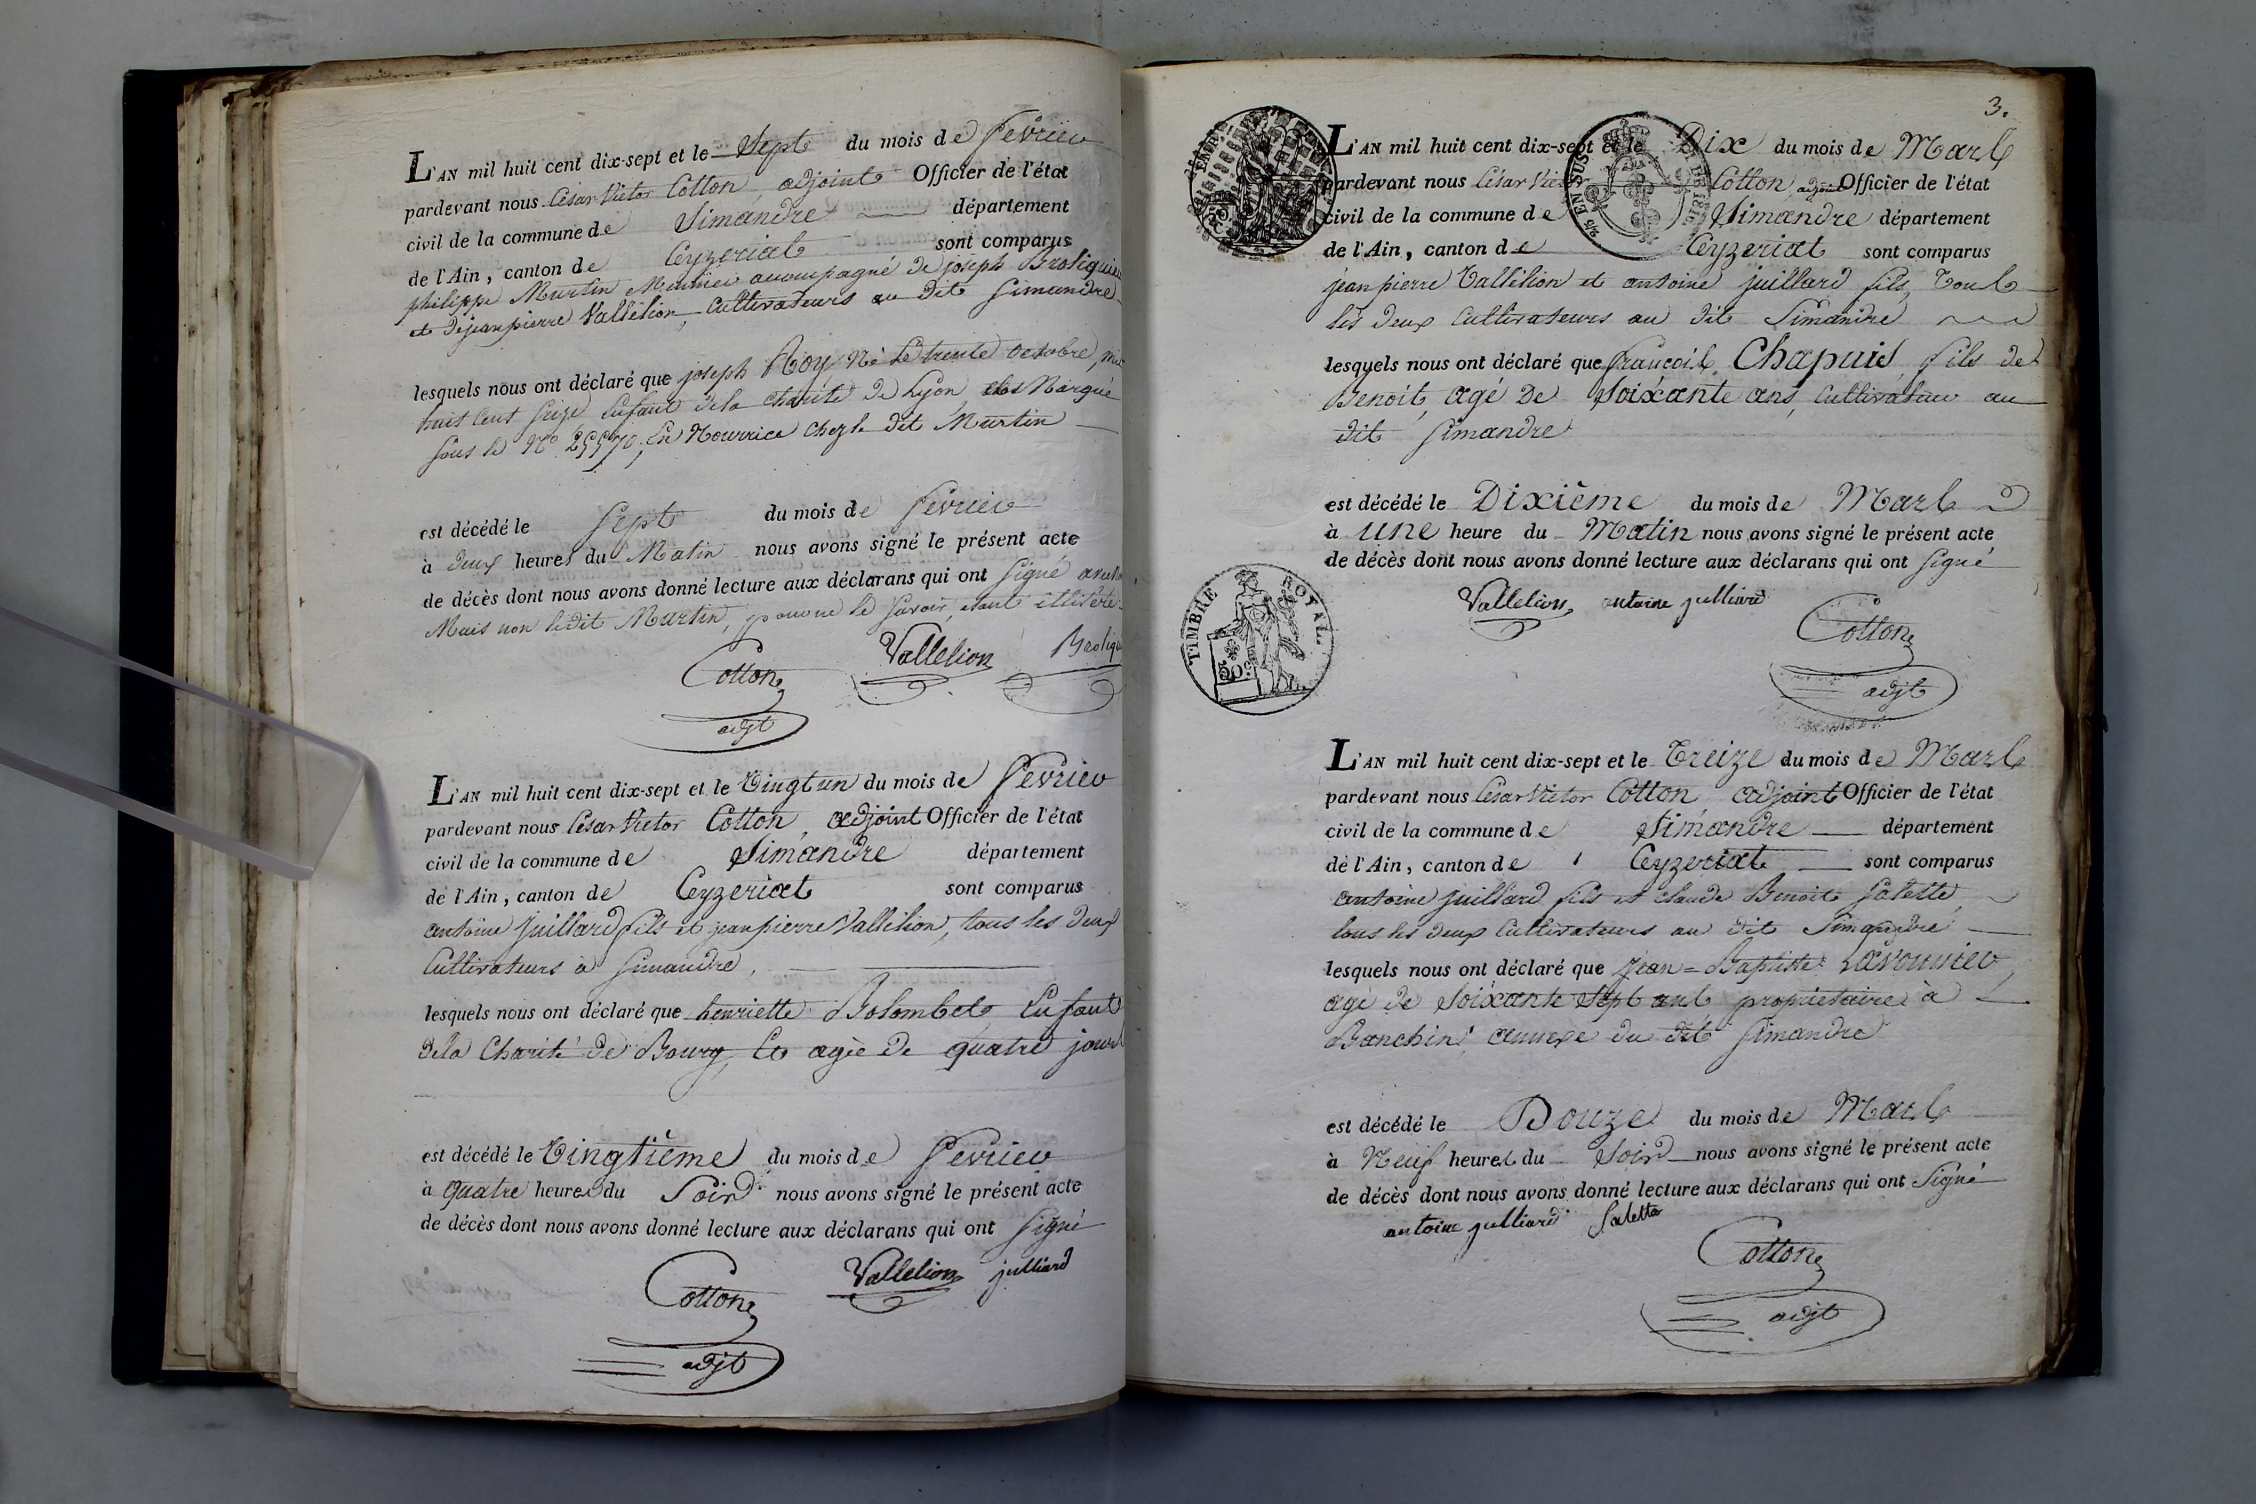 L'AN mil huit cent dix-sept et le Sept du mois de fevrier
pardevant nous César Victor Cotton adjoint Officier de l'état
civil de la commune de Simandre département
de l'Ain, canton de Ceyzeriat sont comparus
philippe Martin Meunier accompagné de joseph Broliquier
et de jean pierre Vallélion, Cultivateurs au dit Simandre
lesquels nous ont déclaré que joseph Roy Né le trente octobre, mil
huit Cent Seize Enfant de la charité de Lyon Marqué
sous le No. 25570, En Nourrice chez le dit Martin
est décédé le Sept du mois de fevrier
à deux heures du Matin nous avons signé le présent acte
de décès dont nous avons donné lecture aux déclarans qui ont signé
Mais non ledit Martin, pour ne le savoir, étant
Cotton adjt Vallelion
L'AN mil huit cent dix-sept et le Vingt un du mois de fevrier
pardevant nous César Victor Cotton, adjoint Officier de l'état
civil de la commune de Simandre département
de l'Ain, canton de Ceyzeriat sont comparus
antoine Juillard fils et jean pierre Vallélion, tous les deux
Cultivateurs à Simandre,
lesquels nous ont déclaré que henriette Bolombel Enfant
de la Charité de Bourg, agée de quatre jours
est décédé le Vingtième du mois de fevrier
à quatre heures du Soir nous avons signé le présent acte
de décès dont nous avons donné lecture aux déclarans qui ont signé
Cotton adjt Vallelion julliard
3.
L'AN mil huit cent dix-sept et le Dix du mois de Mars
pardevant nous César Victor Cotton, adjoint Officier de l'état
civil de la commune de Simandre département
de l'Ain, canton de Ceyzeriat sont comparus
jean pierre Vallélion et antoine juillard fils, tous
les deux Cultivateurs au dit Simandre
lesquels nous ont déclaré que françois Chapuis fils de
Benoit, agé de Soixante ans, Cultivateur au
dit Simandre
est décédé le Dixième du mois de Mars
à une heure du Matin nous avons signé le présent acte
de décès dont nous avons donné lecture aux déclarans qui ont signé
Vallelion antoine julliard
Cotton
adjt
TIMBRE ROYAL.
50c.
L'AN mil huit cent dix-sept et le Treize du mois de Mars
pardevant nous César Victor Cotton, adjoint Officier de l'état
civil de la commune de Simandre département
de l'Ain, canton de Ceyzeriat sont comparus
antoine juillard fils et claude Benoit Salette,
tous les deux Cultivateurs au dit Simandre
lesquels nous ont déclaré que jean-Baptiste Lavournier,
agé de Soixante Sept ans propriétaire à
Banchin, annexe du dit Simandre
est décédé le Douze du mois de Mars
à Neuf heures du Soir nous avons signé le présent acte
de décès dont nous avons donné lecture aux déclarans qui ont signé
antoine julliard Saletta
Cotton
adjt